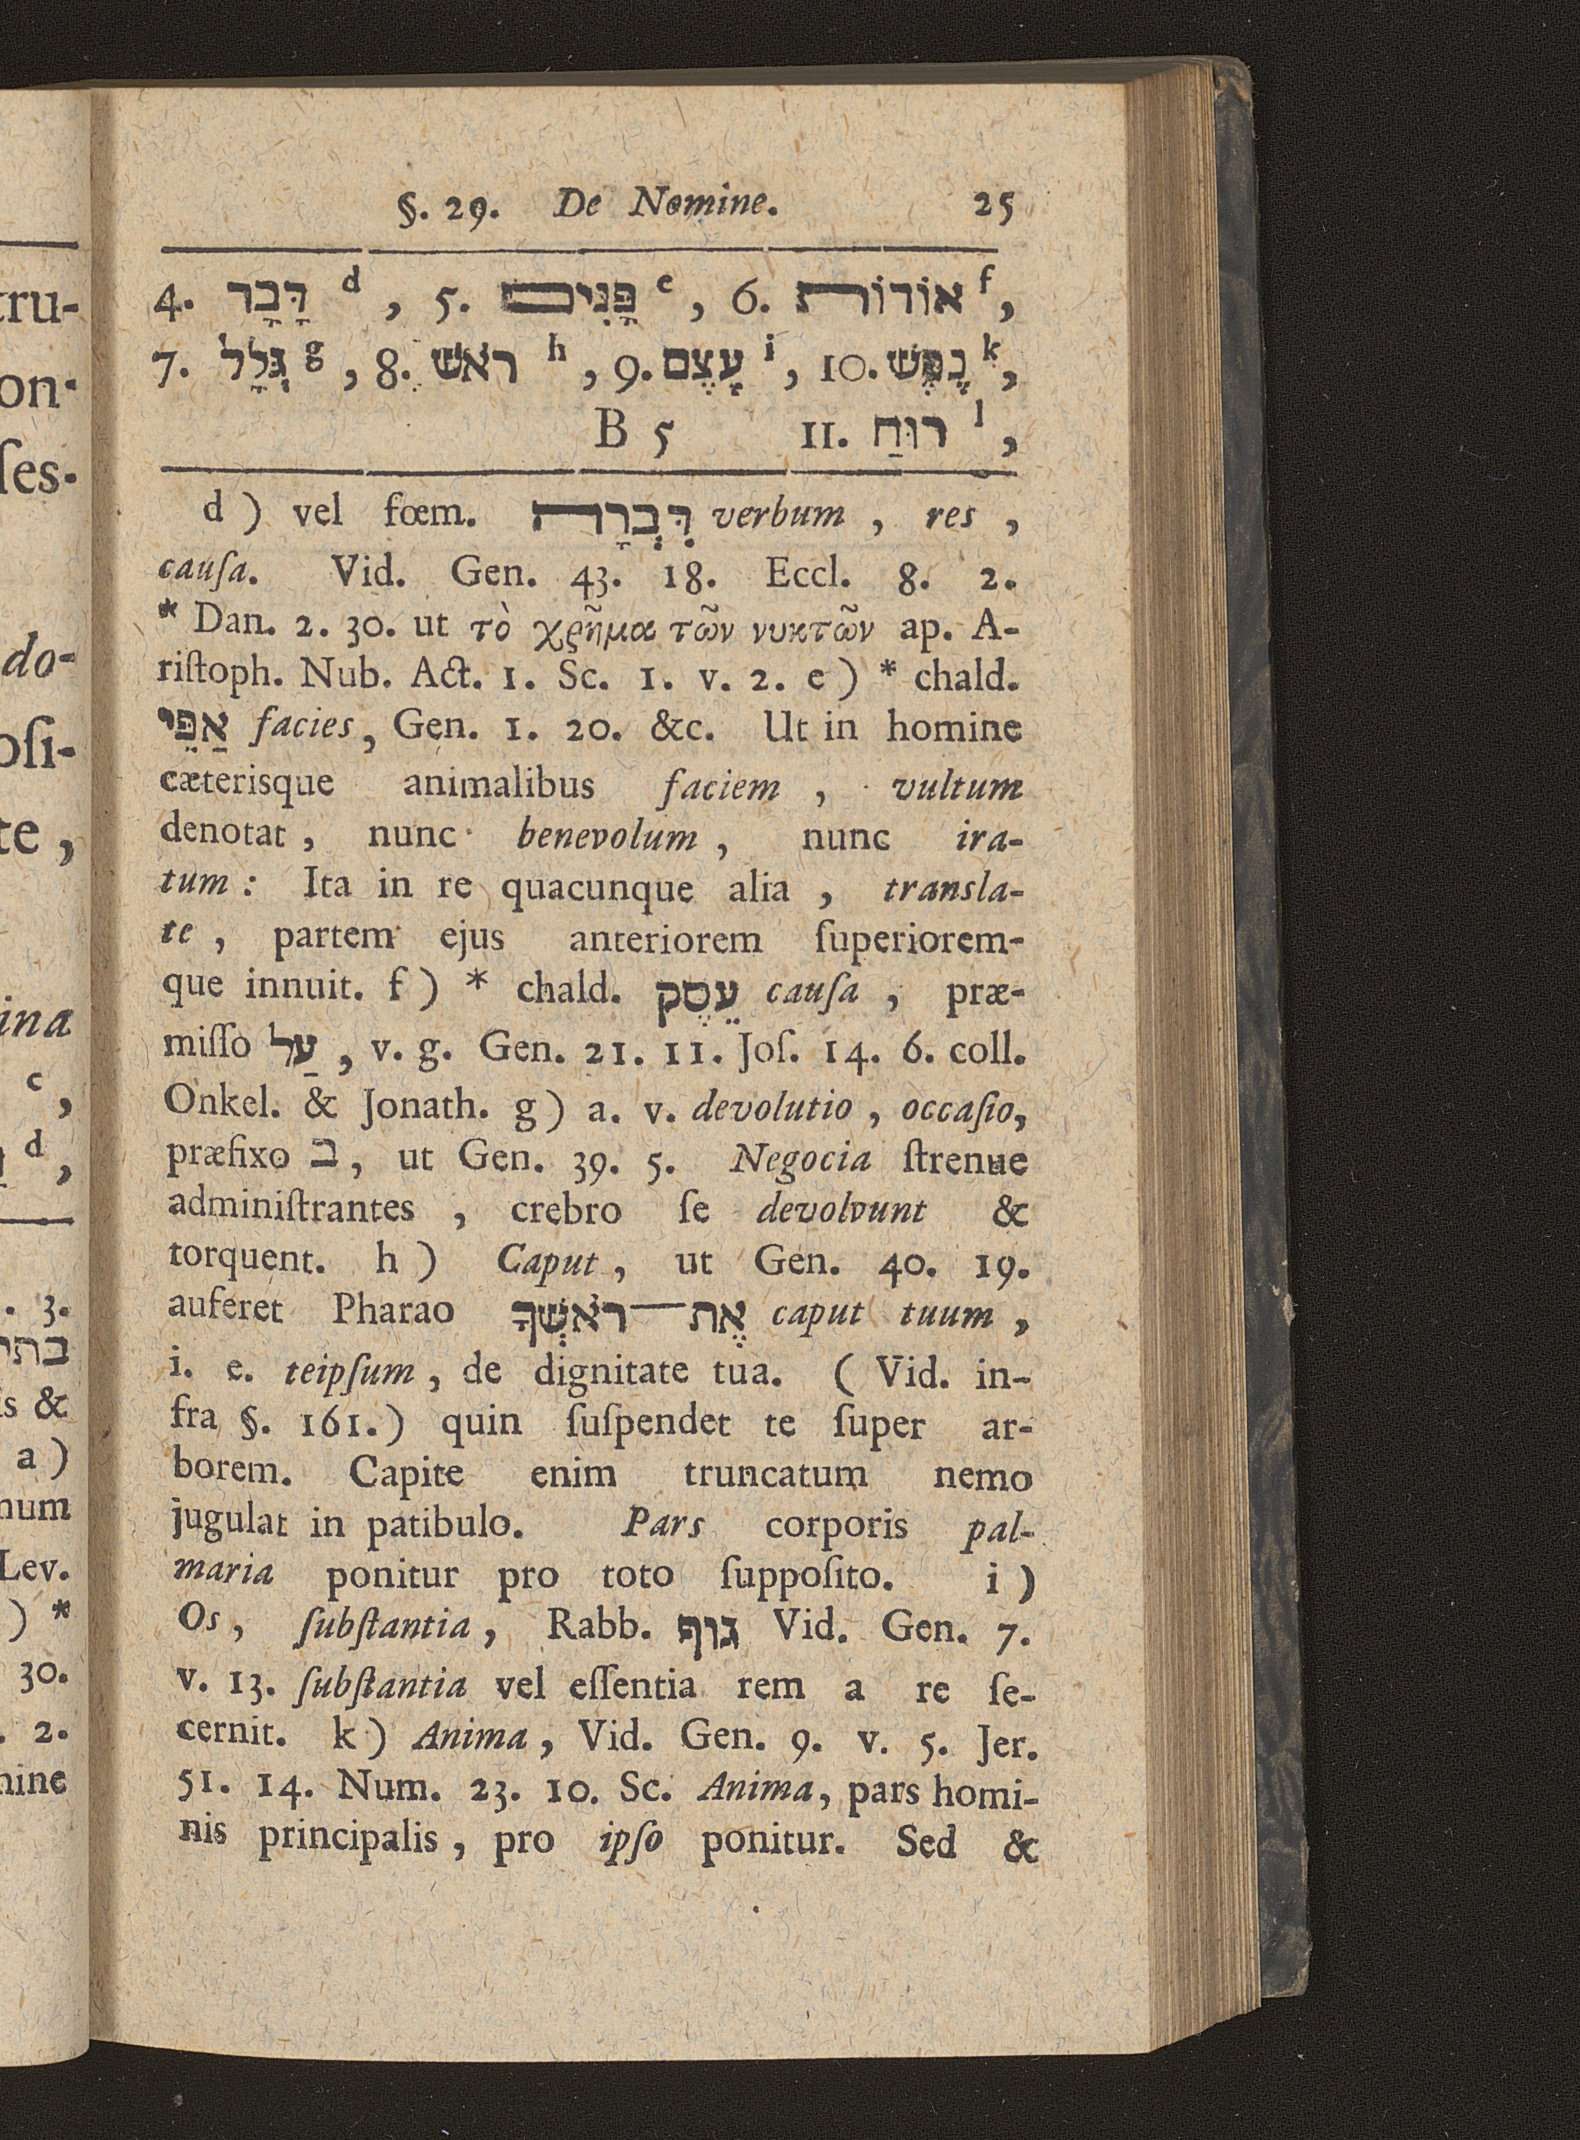 §. 29. De Nomine. 25
4. דָּבָר d , 5. פָּנִים e , 6. אוֹרוֹת f ,
7. גְּלָל g , 8. ראֹשׁ h , 9. עָצֶם i , 10. נָפֶשׁ k ,
B 5 11. רוּחַ l ,
d ) vel fœm. דִּבְרָה verbum , res ,
cauſa. Vid. Gen. 43. 18. Eccl. 8. 2.
* Dan. 2. 30. ut τὸ χρῆμα τῶν νυκτῶν ap. A-
riſtoph. Nub. Act. 1. Sc. 1. v. 2. e ) * chald.
אַפֵּי facies , Gen. 1. 20. &c. Ut in homine
cæterisque animalibus faciem , vultum
denotat , nunc benevolum , nunc ira-
tum : Ita in re quacunque alia , transla-
te , partem ejus anteriorem ſuperiorem-
que innuit. f ) * chald. עֵסֶק cauſa , præ-
miſſo עַל , v. g. Gen. 21. 11. Joſ. 14. 6. coll.
Onkel. & Jonath. g ) a. v. devolutio , occaſio,
præfixo ב , ut Gen. 39. 5. Negocia ſtrenue
adminiſtrantes , crebro ſe devolvunt &
torquent. h ) Caput , ut Gen. 40. 19.
auferet Pharao אֶת־ראֹשְׁךָ caput tuum ,
i. e. teipſum , de dignitate tua. ( Vid. in-
fra §. 161. ) quin ſuſpendet te ſuper ar-
borem. Capite enim truncatum nemo
jugulat in patibulo. Pars corporis pal-
maria ponitur pro toto ſuppoſito. i )
Os , ſubſtantia , Rabb. גוף Vid. Gen. 7.
v. 13. ſubſtantia vel eſſentia rem a re ſe-
cernit. k ) Anima , Vid. Gen. 9. v. 5. Jer.
51. 14. Num. 23. 10. Sc. Anima , pars homi-
nis principalis , pro ipſo ponitur. Sed &